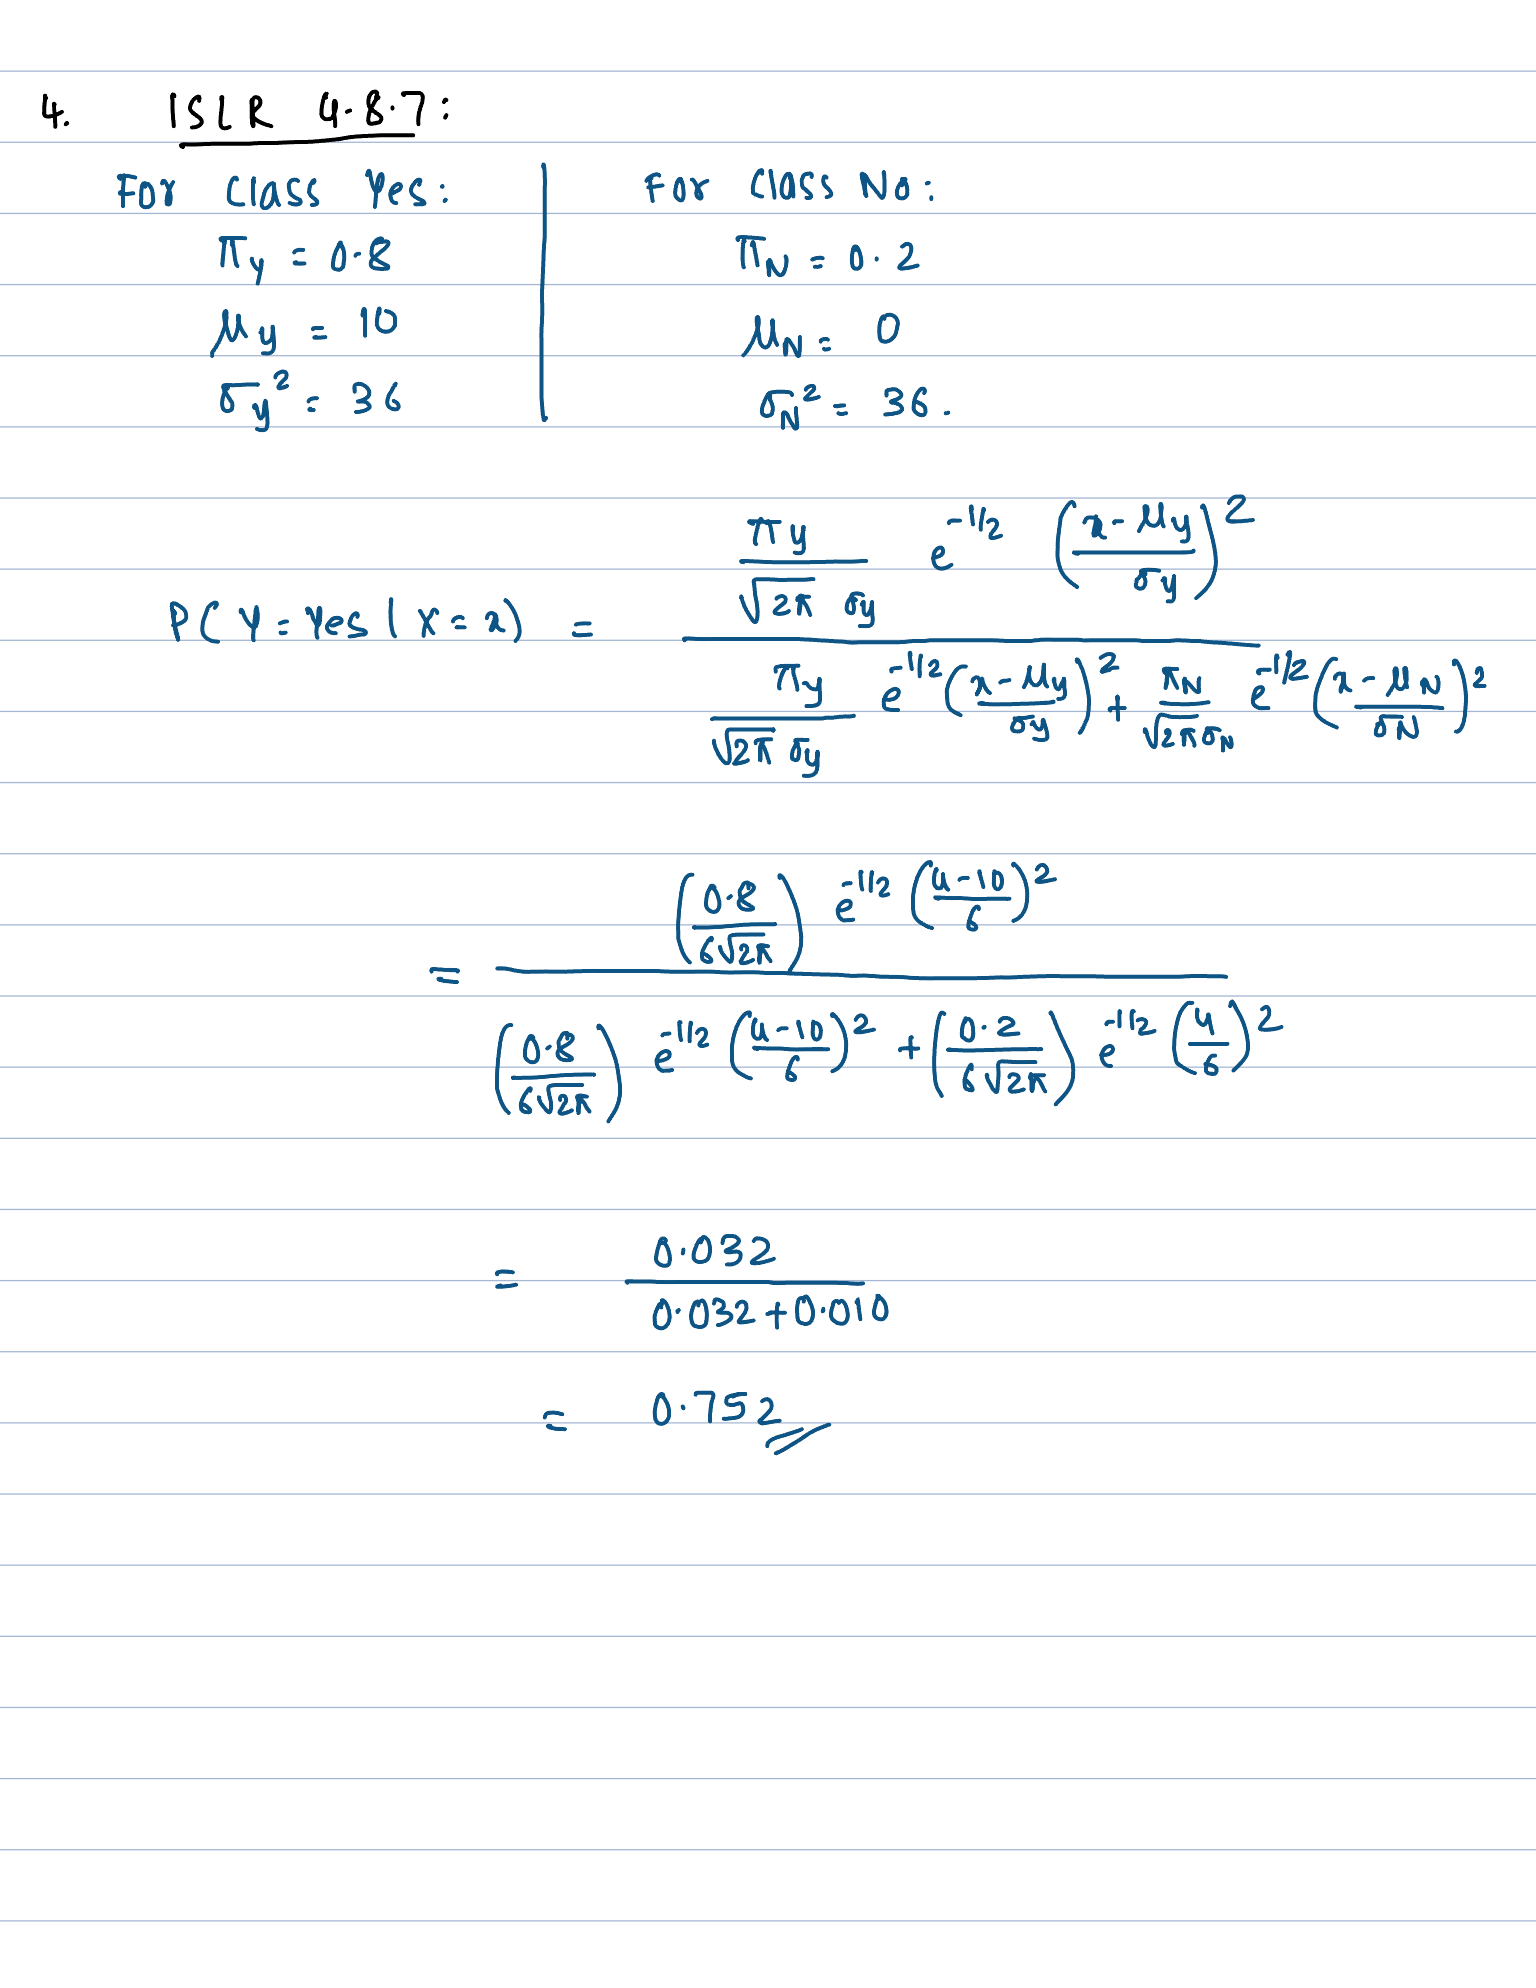 4. ISLR 4.8.7:
For Class Yes: For Class No:
π_y = 0.8 π_N = 0.2
μ_y = 10 μ_N = 0
σ_y² = 36 σ_N² = 36.
P(Y = Yes | X = x) = ((π_y / (√2π σ_y)) e^(-1/2 ((x - μ_y)/σ_y)²)) / ((π_y / (√2π σ_y)) e^(-1/2 ((x - μ_y)/σ_y)²) + (π_N / (√2π σ_N)) e^(-1/2 ((x - μ_N)/σ_N)²))
= ((0.8 / (6√2π)) e^(-1/2 ((4 - 10)/6)²)) / ((0.8 / (6√2π)) e^(-1/2 ((4 - 10)/6)²) + (0.2 / (6√2π)) e^(-1/2 (4/6)²))
= 0.032 / (0.032 + 0.010)
= 0.752